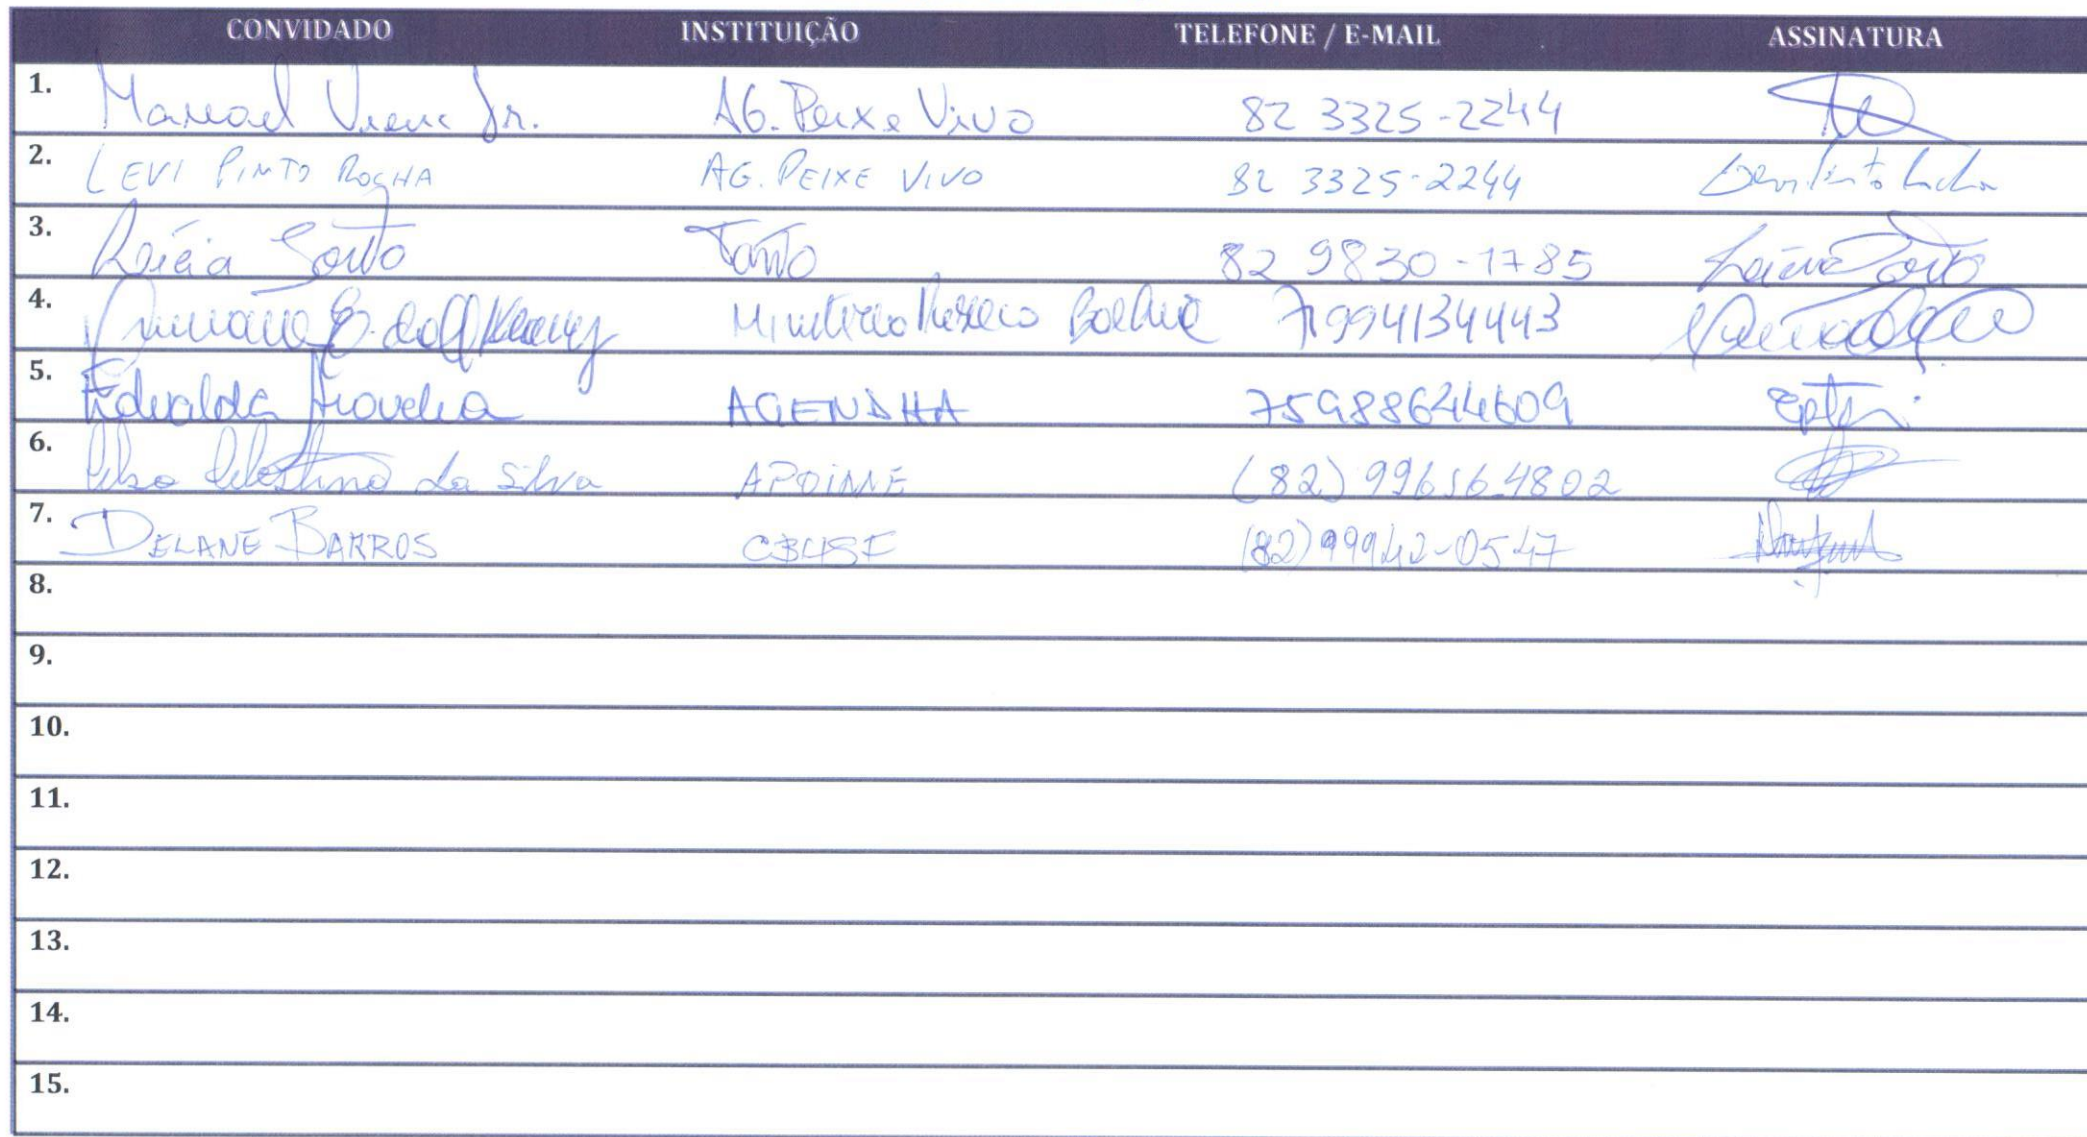 CONVIDADO INSTITUIÇÃO TELEFONE / E-MAIL ASSINATURA
1. Manoel Vieira Jr. AG. Peixe Vivo 82 3325-2244
2. LEVI PINTO ROCHA AG. PEIXE VIVO 82 3325-2244 Levi Pinto Rocha
3. Porto Tanto 82 9830-1785 Porto
4. Luciana Ministério Público Bahia 71994134443
5. Edvalda AGENDHA 75988644609
6. Celso Celestino da Silva APOINME (82) 996164802
7. DELANE BARROS CBHSF (82) 99942-0547
8.
9.
10.
11.
12.
13.
14.
15.